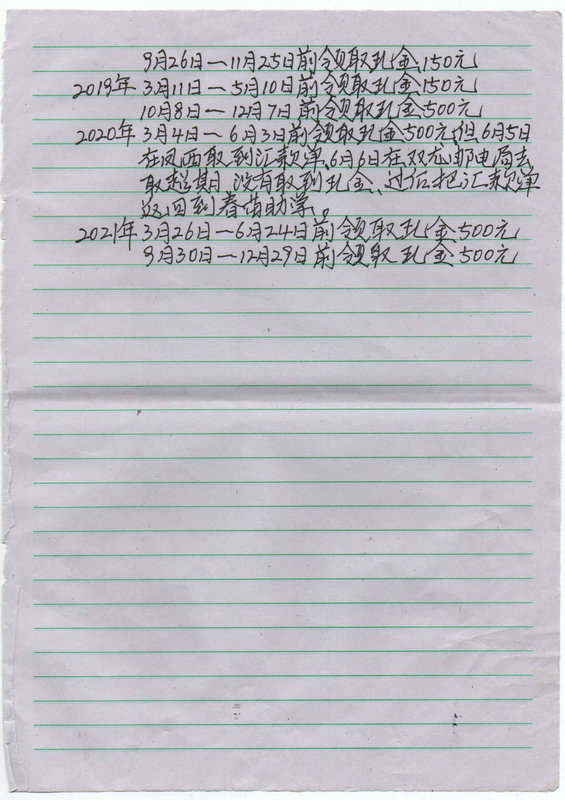 9月26日—11月25日前领取现金150元
2019年 3月11日—5月10日前领取现金150元
10月8日—12月7日前领取现金500元
2020年 3月4日—6月3日前领取现金500元,但6月5日
在凤西取到汇款单,6月6日在双龙邮电局去
取超期,没有取到现金、过后把汇款单
返回到春苗助学。
2021年 3月26日—6月24日前领取现金500元
9月30日—12月29日前领取现金500元